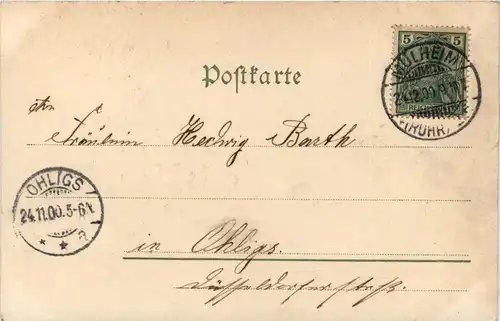 5 5
MÜLHEIM
(RUHR)
Postkarte
An
Fräulein Hedwig Barth
OHLIGS
24.11.00.5-6N.
a
in Ohligs.
Düsseldorferstraß.